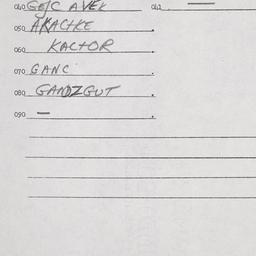 040 GEJC AVEK 042 —
050 AKACHKE
060 KACTOR
070 GANC
080 GANDZGUT
090 —